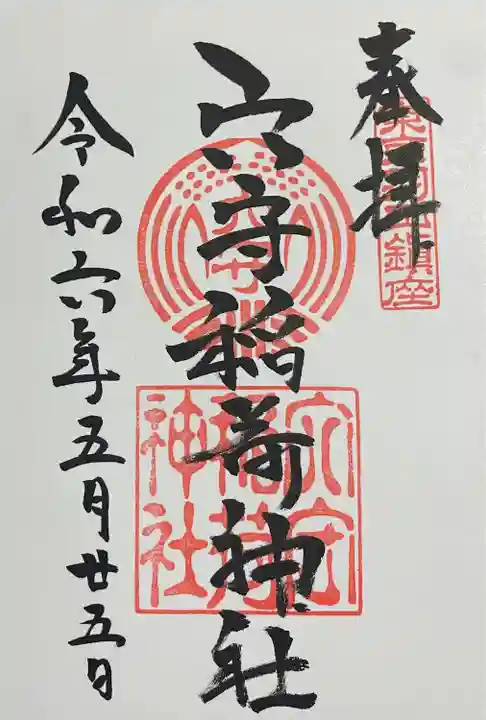 奉拝
穴守稲荷神社
令和六年五月廿五日
穴守
稲荷
神社